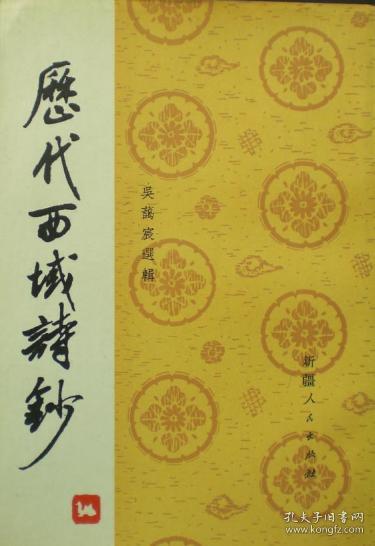 歷代西域詩鈔
吳藹宸選輯
新疆人民出版社
孔夫子旧书网
www.kongfz.com